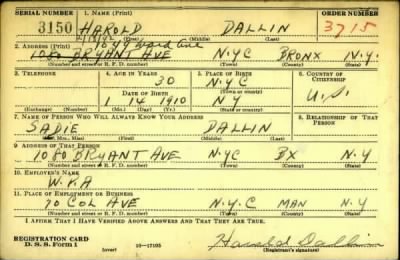 SERIAL NUMBER 1. NAME (Print) ORDER NUMBER
3150 HAROLD DALLIN 3715
(First) (Middle) (Last)
2. ADDRESS (Print) 1044 Ward Ave
1080 BRYANT AVE NYC BRONX N.Y.
(Number and street or R. F. D. number) (Town) (County) (State)
3. TELEPHONE 4. AGE IN YEARS 5. PLACE OF BIRTH 6. COUNTRY OF CITIZENSHIP
30 NYC
(Town or county)
DATE OF BIRTH
1 14 1910 NY U.S.
(Exchange) (Number) (Mo.) (Day) (Yr.) (State or country)
7. NAME OF PERSON WHO WILL ALWAYS KNOW YOUR ADDRESS 8. RELATIONSHIP OF THAT PERSON
SADIE DALLIN
(Mr., Mrs., Miss) (First) (Middle) (Last)
9. ADDRESS OF THAT PERSON
1080 BRYANT AVE NYC BX N.Y
(Number and street or R. F. D. number) (Town) (County) (State)
10. EMPLOYER'S NAME
W.P.A
11. PLACE OF EMPLOYMENT OR BUSINESS
70 COL AVE N.Y.C MAN N.Y
(Number and street or R. F. D. number) (Town) (County) (State)
I AFFIRM THAT I HAVE VERIFIED ABOVE ANSWERS AND THAT THEY ARE TRUE.
REGISTRATION CARD
D. S. S. Form 1 (over) 16—17105 Harold Dallin
(Registrant's signature)